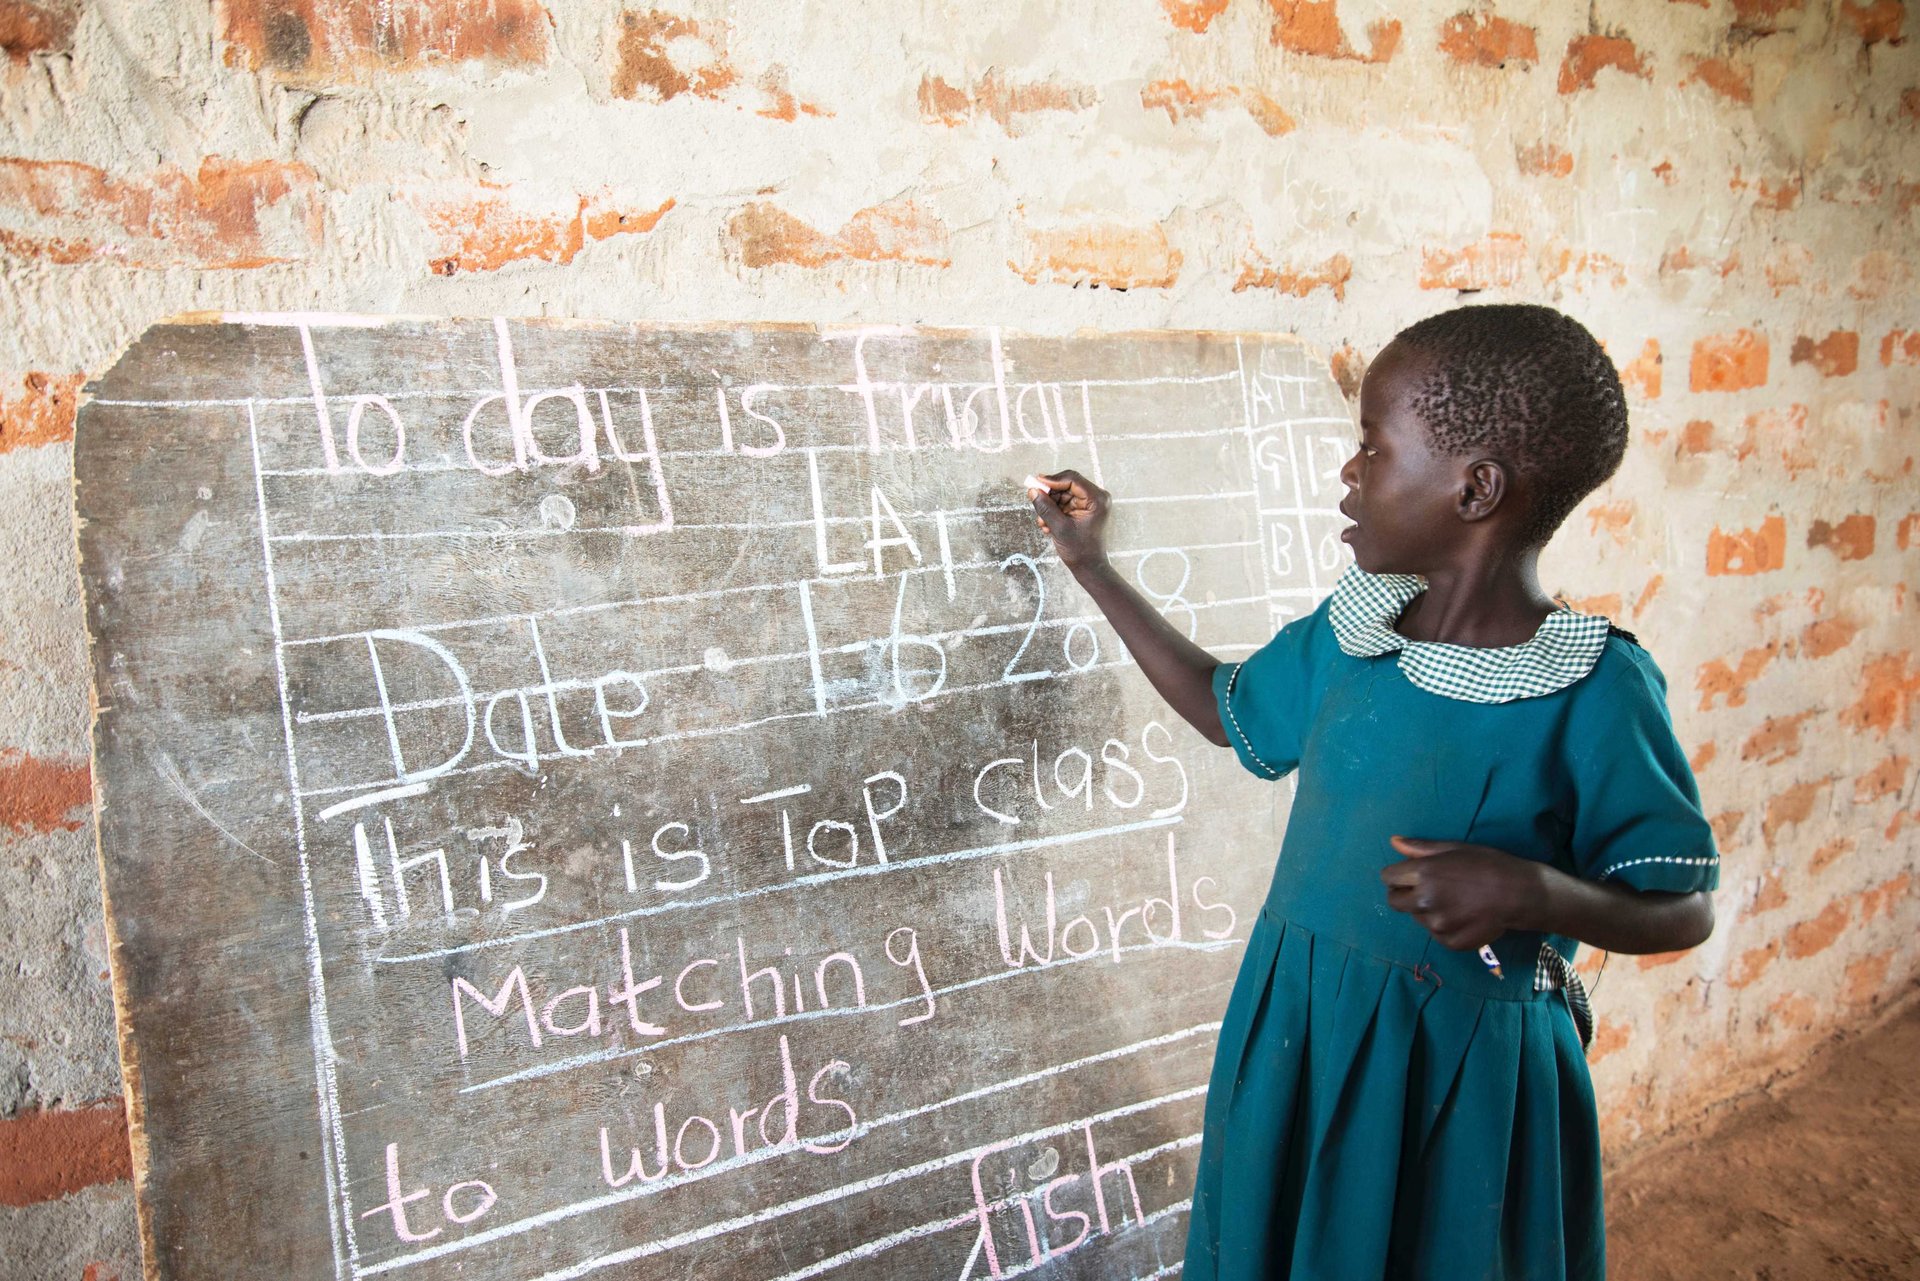 To day is friday
LA1
Date 1-6 2018
This is ToP class
Matching Words
to words
fish
ATT
G 17
B